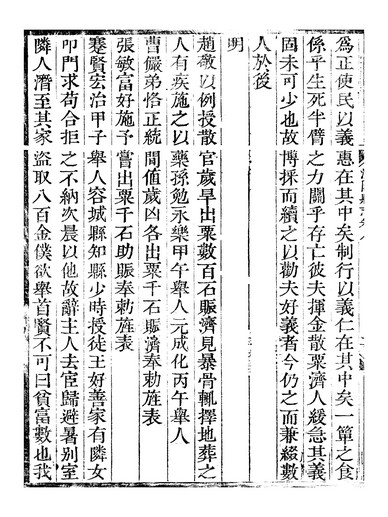 為正使民以義惠在其中矣制行以義仁在其中矣一簞之食
係乎生死半臂之力關乎存亡彼夫揮金散粟濟人緩急其義
固未可少也故博採而續之以勸夫好義者今仍之而兼綴數
人於後
明
趙敬以例授散官歲旱出粟數百石賑濟見暴骨輒擇地葬之
人有疾施之以藥孫勉永樂甲午舉人元成化丙午舉人
曹儼弟恪正統間值歲凶各出粟千石賑濟奉勅旌表
張敏富好施予嘗出粟千石助賑奉勅旌表
蹇賢宏治甲子舉人容城縣知縣少時授徒王好善家有隣女
叩門求苟合拒之不納次晨以他故辭主人去宦歸避暑別室
隣人潛至其家盜取八百金僕欲舉首賢不可曰貧富數也我